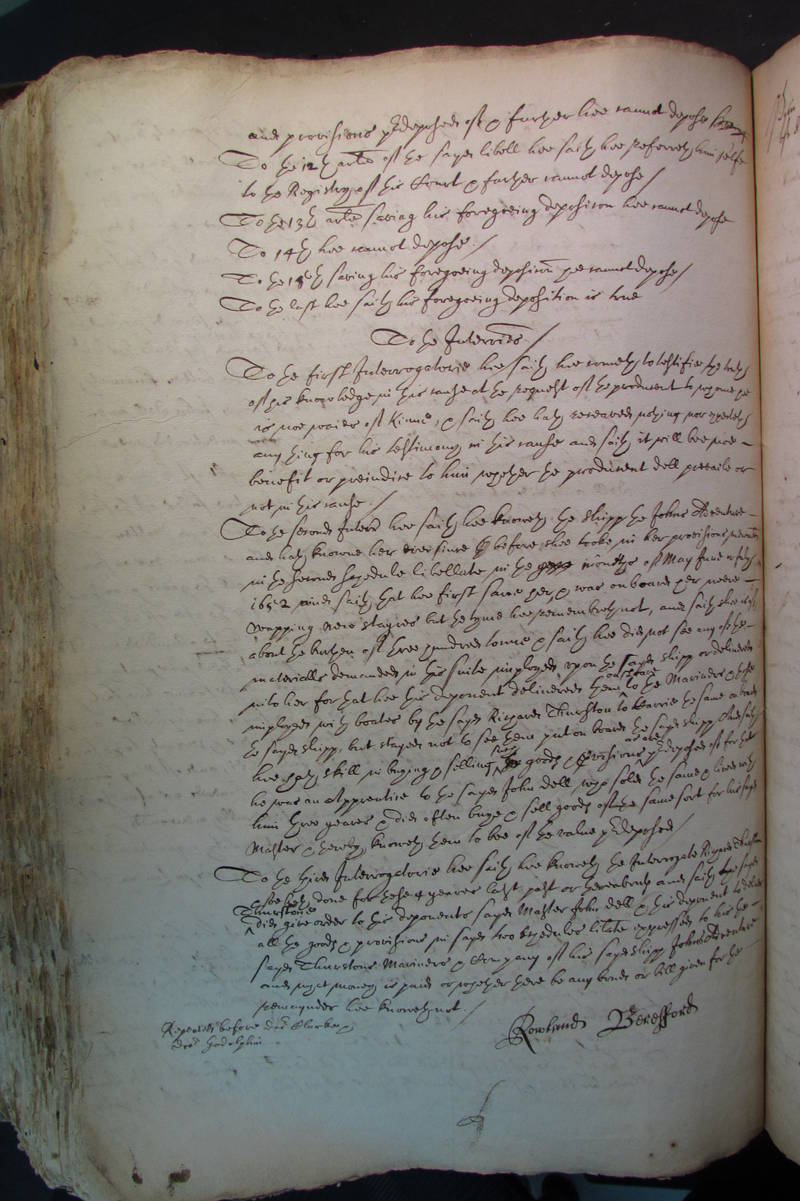 and provisions predeposed of & further hee cannot depose
To the 12th arle of the sayd libell hee saith hee referreth him selfe
to the Registry of this Court & further cannot depose /
To the 13th arle saving his foregoeing deposition hee cannot depose
To 14th hee cannot depose /
To the 15th saving his foregoeing deposition hee cannot depose /
To the last hee saith his foregoeing deposition is true
To the Interries /
To the first Interrogatorie hee saith hee cometh to testifie the truth
of his knowledge in this cause at the request of the producent to whome he
is noe waies of kinne, & saith hee hath received nothing nor expecteth
any thing for his testimony in this cause and saith it will bee noe
benefit or preiudice to him whether the producent dell prevaile or
not in this cause /
To the second Interr hee saith hee knoweth the shipp the Johns Adventure
and hath knowne her ever since before shee tooke in her provisions
in the second schedule libellate in the moneths of May June or July
1652 and saith that hee first sawe her & was onboard her neere
Wapping new stayres but the tyme hee remembreth not, and saith shee is of
about the burthen of three hundred tonns & saith hee did not see any of the
materialls demanded in this suite imployed upon the sayd shipp or delivered
into her for that hee this deponent delivered them on shoare to the Mariners & those
imployed with boates by the sayd Richard Thurston to Carrie the same aboard
the sayd shipp, but stayed not to see them put on board the sayd shipp And saith
hee hath skill in buying & selling such goods & provisions as are predeposed of for that
he was an Apprentice to the sayd John dell who sold the same & lived with
him three yeares & did often buye & sell goods of the same sort for his sayd
Master & thereby knoweth them to bee of the value predeposed /
To the third Interrogatorie hee saith hee knoweth the Interrogate Richard Thurston
& soe hath done for these 4 yeares last past or thereabouts and saith the sayd
Thurston
did give order to this deponents sayd Master John dell & this deponent to deliver
all the goods & provisions in sayd two schedules litate expressed to his the
sayd Thurstons Mariners & Company of his sayd shipp Johns Adventure
and what money is paid or whether there be any bond or bill given for the
remaynder hee knoweth not /
Repeated before doctor Clarke &
doctor Godolphin
Rowland Berefford